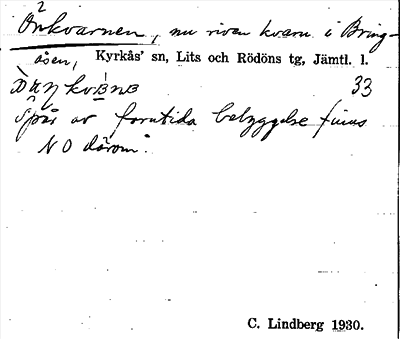 Önkvarnen, nu riven kvarn i Bring-
åsen, Kyrkås' sn, Lits och Rödöns tg, Jämtl. l.
33
Spår av forntida bebyggelse finns
N O därom.
C. Lindberg 1930.